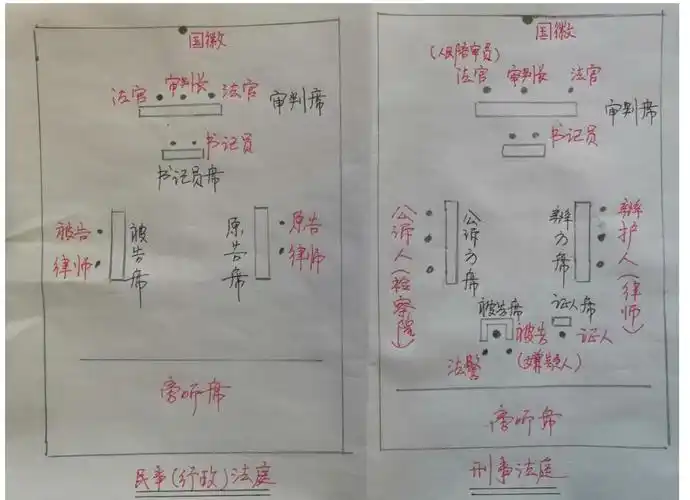 国徽
法官 审判长 法官 审判席
书记员
书记员席
被告
律师
被告席
原告席
原告
律师
旁听席
民事(行政)法庭
国徽
(人民陪审员)
法官 审判长 法官
审判席
书记员
公诉人(检察院)
公诉方席
辩方席
辩护人(律师)
被告席
证人席
被告
(嫌疑人)
证人
法警
旁听席
刑事法庭